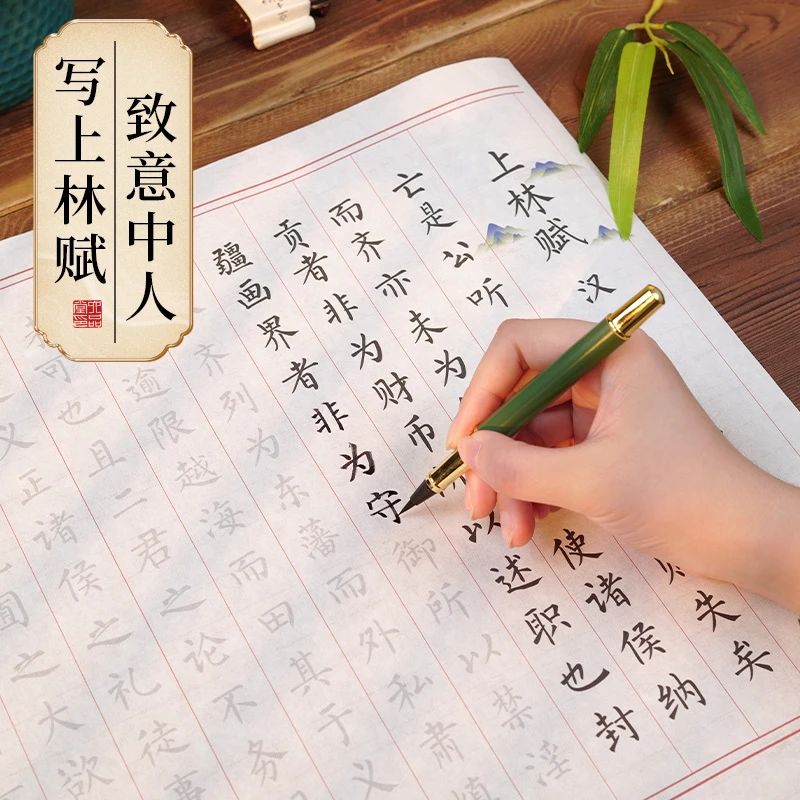 写上林赋
致意中人
上林赋
汉
亡是公听
失矣
而齐亦未为
使诸侯纳
贡者非为财币所以述职也封
疆画界者非为守御所以禁淫
齐列为东藩而外私肃慎
逾限越海而田其于义
可也且二君之论不务
义正诸侯之礼徒事
之大欲